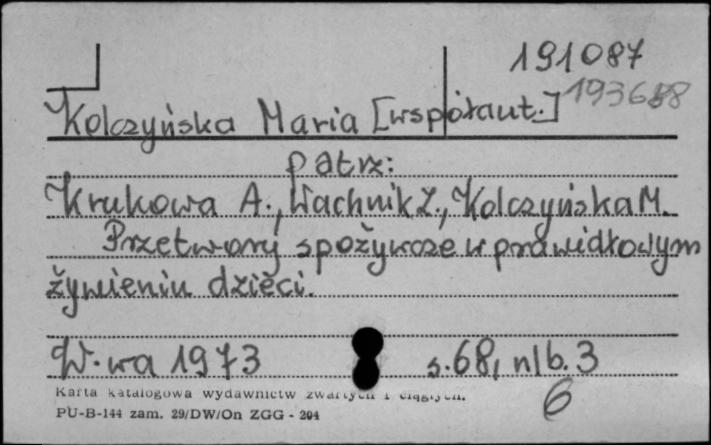 191087
Kolczyńska Maria [współaut.] 193688
patrz:
Krukowa A., Wachnik Z., Kolczyńska M.
Przetwory spożywcze w prawidłowym
żywieniu dzieci.
W-wa 1973 s.68, nlb.3
Karta katalogowa wydawnictw zwartych i ciągłych.
PU-B-144 zam. 29/DW/On ZGG - 204
6